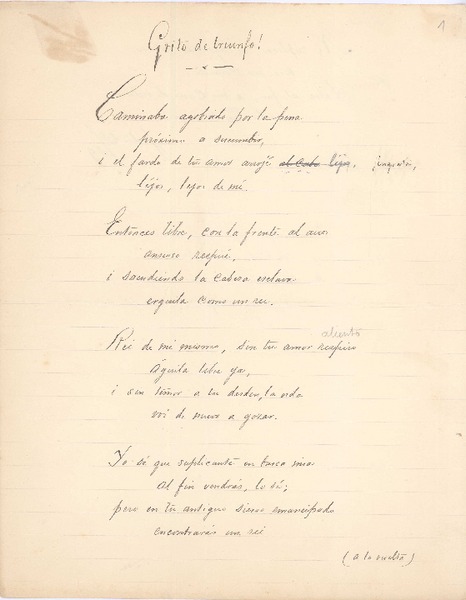 1
Grito de triunfo!
Caminaba agobiado por la pena
próximo a sucumbir,
i el fardo de tu amor arrojé al cabo lejos,
lejos, lejos de mí.
Entónces libre, con la frente al aire
ansioso respiré,
i sacudiendo la cabeza esclava
erguíla como un rei.
aliento
Rei de mí mismo, sin tu amor respiro
Águila libre ya,
i sin temor a tu desden, la vida
voi de nuevo a gozar.
Yo sé que suplicante en busca mia
al fin vendrás, lo sé;
pero en tu antiguo siervo emancipado
encontrarás un rei
(a la vuelta)